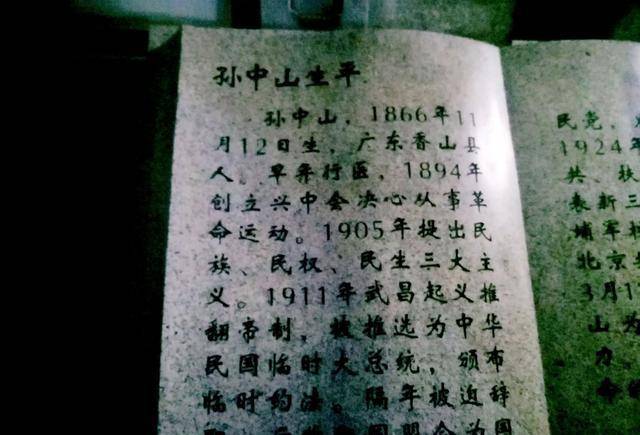 孙中山生平
孙中山，1866年11
月12日生，广东香山县
人。早年行医，1894年
创立兴中会决心从事革
命运动。1905年提出民
族、民权、民生三大主
义。1911年武昌起义推
翻帝制，被推选为中华
民国临时大总统，颁布
临时约法。隔年被迫辞
同盟会为国
民党，
1924年
共、扶
表新三
埔军校
北京
3月1
山为
力。
命